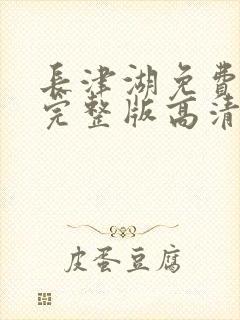 長津湖免費
完整版高清
皮蛋豆腐